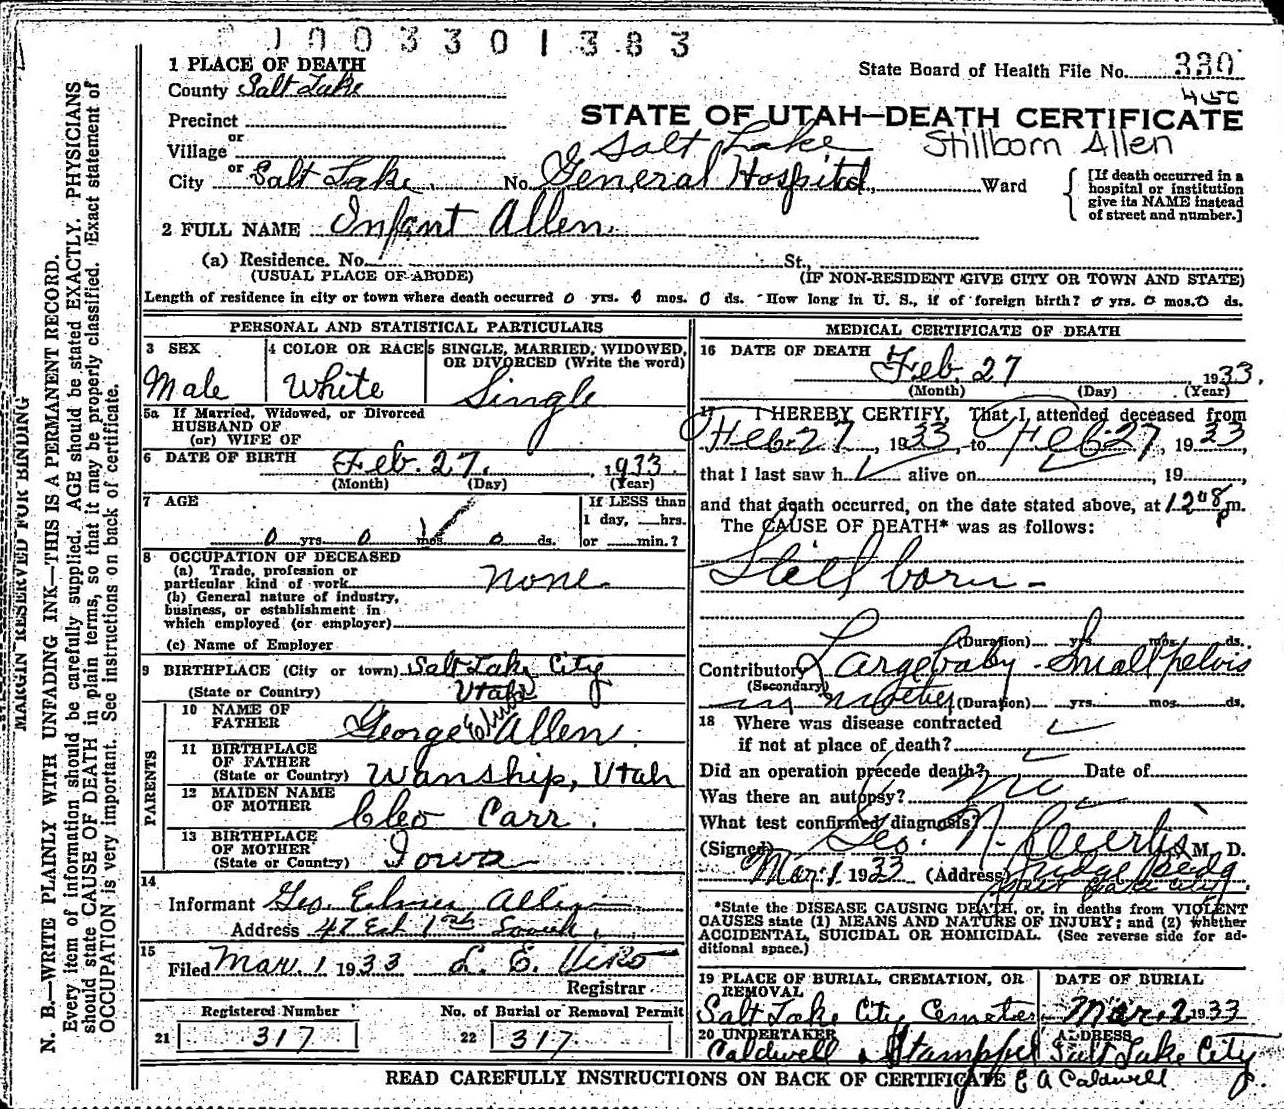 1003301383
1 PLACE OF DEATH
State Board of Health File No. 330
County Salt Lake
STATE OF UTAH—DEATH CERTIFICATE
Precinct
or
Village
Salt Lake Stillborn Allen
or
City Salt Lake, No. General Hospital, Ward
[If death occurred in a hospital or institution give its NAME instead of street and number.]
2 FULL NAME Infant Allen.
(a) Residence. No. St.,
(USUAL PLACE OF ABODE) (IF NON-RESIDENT GIVE CITY OR TOWN AND STATE)
Length of residence in city or town where death occurred 0 yrs. 0 mos. 0 ds. How long in U. S., if of foreign birth? 0 yrs. 0 mos. 0 ds.
PERSONAL AND STATISTICAL PARTICULARS
3 SEX 4 COLOR OR RACE 5 SINGLE, MARRIED, WIDOWED, OR DIVORCED (Write the word)
Male White Single
5a If Married, Widowed, or Divorced
HUSBAND OF
(or) WIFE OF
6 DATE OF BIRTH Feb. 27. 1933
(Month) (Day) (Year)
7 AGE
If LESS than
1 day, hrs.
0 yrs 0 mos 0 ds. or min.?
8 OCCUPATION OF DECEASED
(a) Trade, profession or
particular kind of work none
(b) General nature of industry,
business, or establishment in
which employed (or employer)
(c) Name of Employer
9 BIRTHPLACE (City or town) Salt Lake City
(State or Country) Utah
PARENTS
10 NAME OF FATHER George Elmer Allen.
11 BIRTHPLACE OF FATHER (State or Country) Wanship, Utah
12 MAIDEN NAME OF MOTHER Cleo Carr.
13 BIRTHPLACE OF MOTHER (State or Country) Iowa
14
Informant Geo. Elmer Allen
Address 47 East 1st South,
15
Filed Mar. 1 1933 L. E. Viko
Registrar
Registered Number No. of Burial or Removal Permit
21 317 22 317
MEDICAL CERTIFICATE OF DEATH
16 DATE OF DEATH Feb. 27 1933.
(Month) (Day) (Year)
17 I HEREBY CERTIFY, That I attended deceased from
Feb. 27, 1933, to Feb. 27, 1933,
that I last saw h alive on, 19
and that death occurred, on the date stated above, at 12 08 p m.
The CAUSE OF DEATH* was as follows:
Stillborn -
(Duration) yrs. mos. ds.
Contributory Large baby - Small pelvis
(Secondary)
in mother (Duration) yrs. mos. ds.
18 Where was disease contracted
if not at place of death?
Did an operation precede death? Date of
Was there an autopsy? no
What test confirmed diagnosis?
(Signed) Geo. N. Curtis M. D.
Mar. 1 1933 (Address) Judge Bldg.
Salt Lake City
*State the DISEASE CAUSING DEATH, or, in deaths from VIOLENT
CAUSES state (1) MEANS AND NATURE OF INJURY; and (2) whether
ACCIDENTAL, SUICIDAL OR HOMICIDAL. (See reverse side for ad-
ditional space.)
19 PLACE OF BURIAL, CREMATION, OR REMOVAL DATE OF BURIAL
Salt Lake City Cemetery Mar. 2 1933
20 UNDERTAKER ADDRESS
Caldwell & Stampfel Salt Lake City
READ CAREFULLY INSTRUCTIONS ON BACK OF CERTIFICATE E A Caldwell.
MARGIN RESERVED FOR BINDING
N. B.—WRITE PLAINLY WITH UNFADING INK—THIS IS A PERMANENT RECORD.
Every item of information should be carefully supplied. AGE should be stated EXACTLY. PHYSICIANS
should state CAUSE OF DEATH in plain terms, so that it may be properly classified. Exact statement of
OCCUPATION is very important. See instructions on back of certificate.